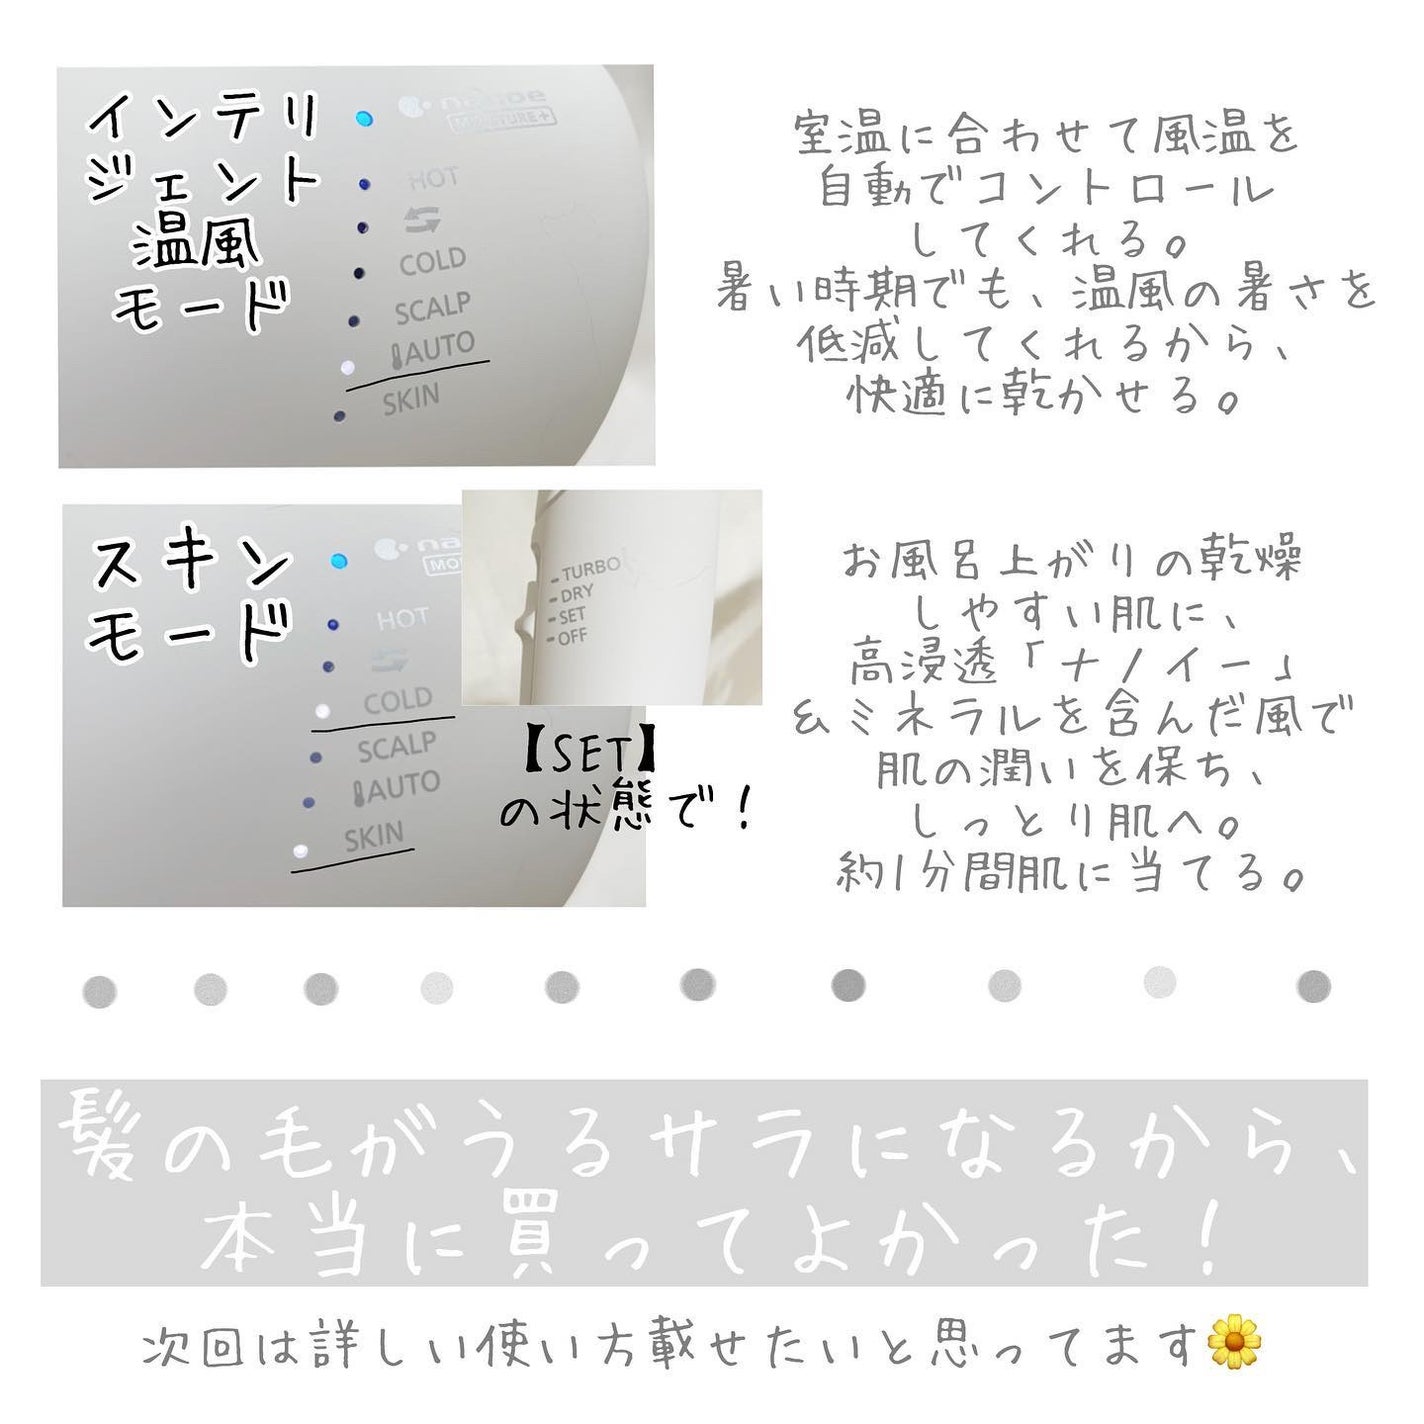 インテリ
ジェント
温風
モード
nanoe
MOISTURE+
HOT
COLD
SCALP
AUTO
SKIN
室温に合わせて風温を
自動でコントロール
してくれる。
暑い時期でも、温風の暑さを
低減してくれるから、
快適に乾かせる。
スキン
モード
HOT
COLD
SCALP
AUTO
SKIN
TURBO
DRY
SET
OFF
【SET】
の状態で！
お風呂上がりの乾燥
しやすい肌に、
高浸透「ナノイー」
&ミネラルを含んだ風で
肌の潤いを保ち、
しっとり肌へ。
約1分間肌に当てる。
髪の毛がうるサラになるから、
本当に買ってよかった！
次回は詳しい使い方載せたいと思ってます🌼